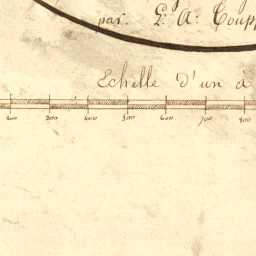 par. L. A. Coupp
Echelle d'un à
200 300 400 500 600 700 800